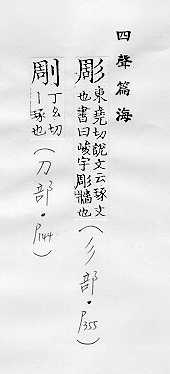 四聲篇海
彫東堯切說文云琢文
也書曰峻宇彫牆也(彡部·P355)
㓮丁幺切
丨琢也(刀部·P144)